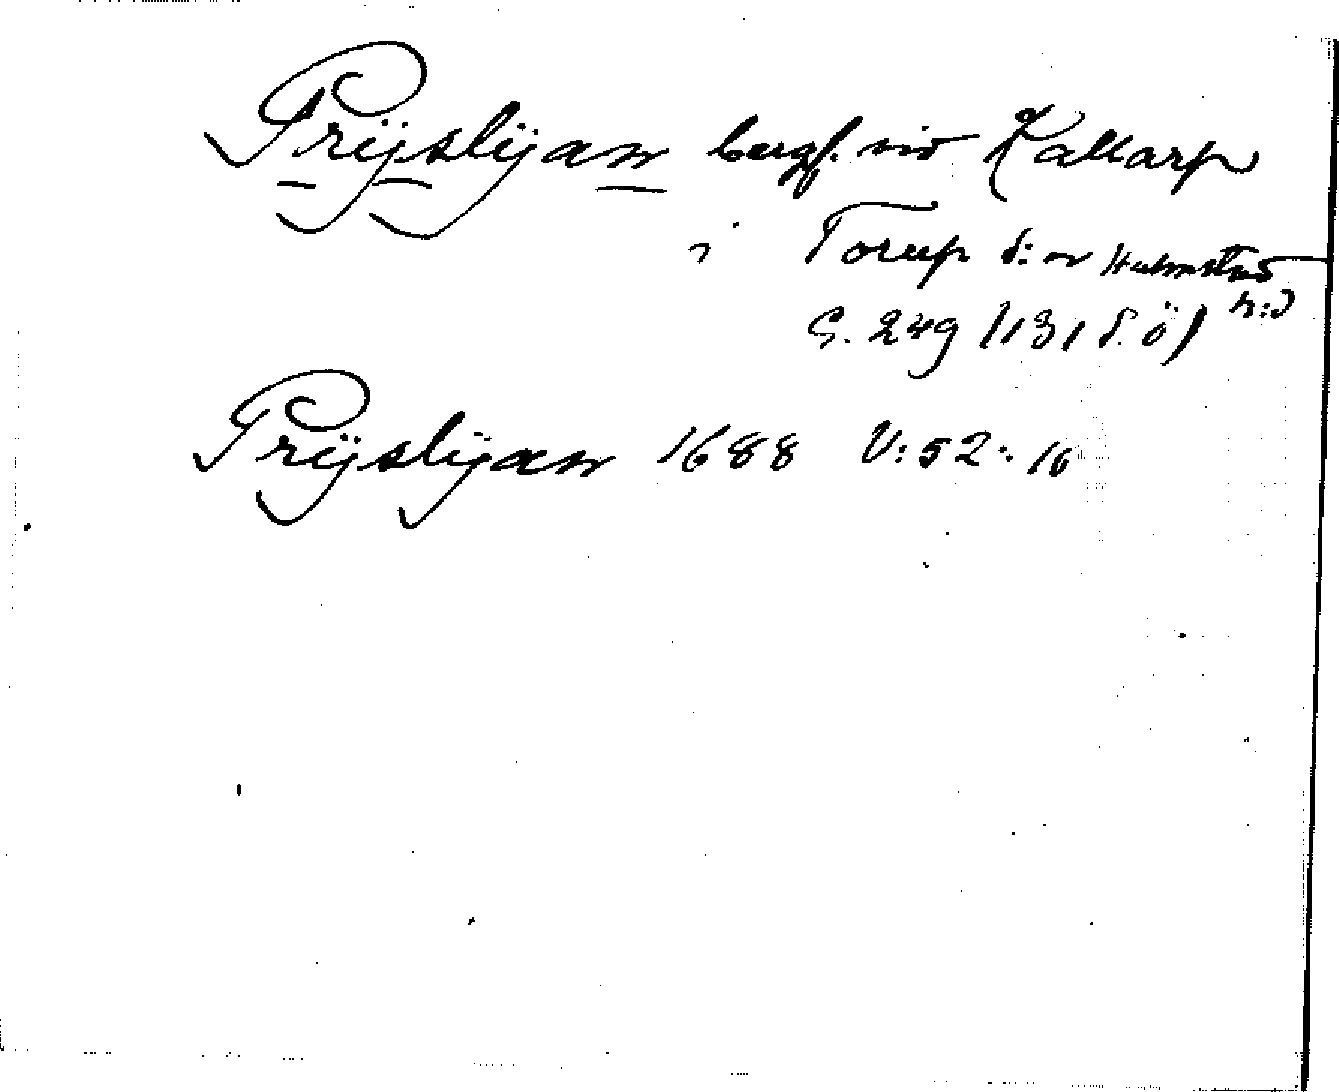 Prÿslÿan bergf. vid Kallarp
i Torup s:n Halmstad
h:d
S. 249 (131 s. ö)
Prÿslÿan 1688 V:52:16